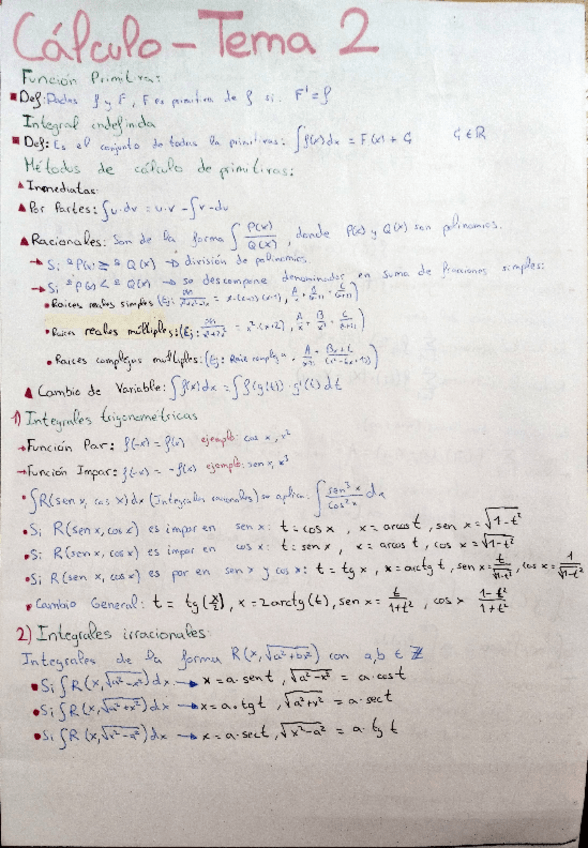 Cálculo - Tema 2
Función Primitiva:
Def: Dadas f y F, F es primitiva de f si F' = f
Integral indefinida
Def: Es el conjunto de todas la primitivas: ∫f(x)dx = F(x) + C C ∈ R
Métodos de cálculo de primitivas:
Inmediatas
Por Partes: ∫u·dv = u·v - ∫v·du
Racionales: Son de la forma ∫ P(x)/Q(x), donde P(x) y Q(x) son polinomios.
Si ºP(x) ≥ ºQ(x) → división de polinomios
Si ºP(x) < ºQ(x) → se descompone denominador en suma de fracciones simples:
Raices reales simples (Ej:
Raices reales múltiples: (Ej: = x²·(x+2), A/x + B/x² +
Raices complejas multiples: (Ej: Raiz compleja
Cambio de Variable: ∫f(x)dx = ∫f(g(t))·g'(t)dt
1) Integrales trigonométricas
→Función Par: f(-x) = f(x) ejemplo: cos x, x²
→Función Impar: f(-x) = -f(x) ejemplo: sen x, x³
∫R(sen x, cos x)dx (Integrales racionales) se aplica: ∫ dx
Si R(sen x, cos x) es impar en sen x: t = cos x, x = arcos t, sen x = √1-t²
Si R(sen x, cos x) es impar en cos x: t = sen x, x = arcos t, cos x = √1-t²
Si R(sen x, cos x) es par en sen x y cos x: t = tg x, x = arctg t, sen x = t/√1-t², cos x = 1/√1-t²
Cambio General: t = tg(x/2), x = 2arctg(t), sen x = t/1+t², cos x 1-t²/1+t²
2) Integrales irracionales:
Integrales de la forma R(x, √a²+bx²) con a,b ∈ Z
Si ∫R(x, √a²-x²)dx → x = a·sen t, √a²-x² = a·cos t
Si ∫R(x, √a²+x²)dx → x = a·tg t, √a²+x² = a·sec t
Si ∫R(x, √x²-a²)dx → x = a·sec t, √x²-a² = a·tg t